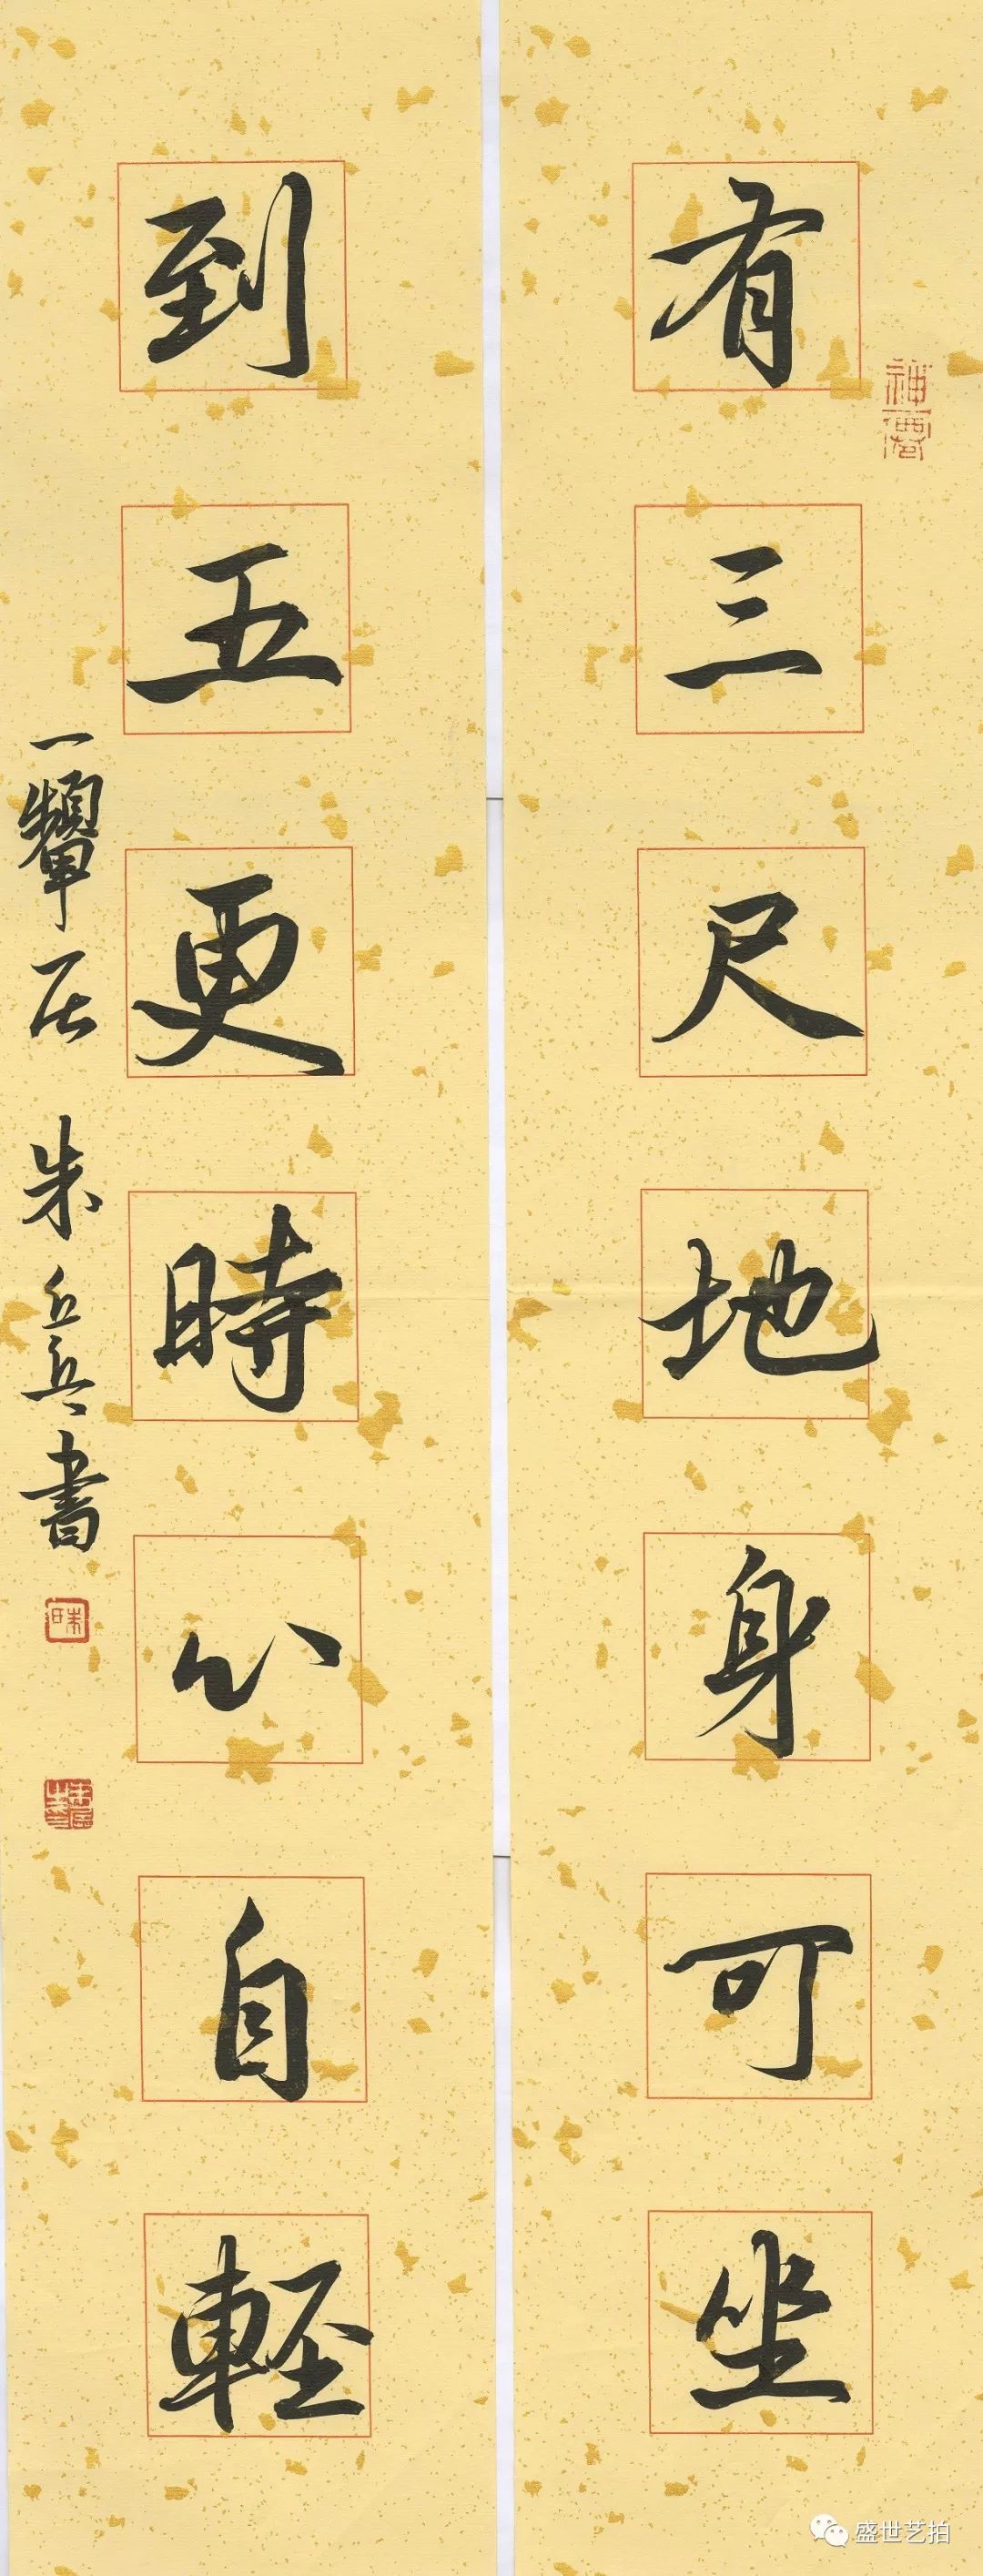 有三尺地身可坐
到五更時心自輕
一顰居 朱岳兵書
盛世艺拍